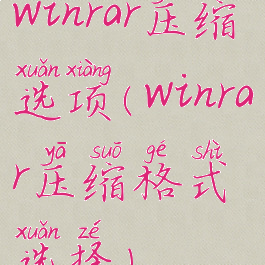 winrar压缩
xuǎn xiàng
选项(winra
yā suō gé shì
r压缩格式
xuǎn zé
选择)